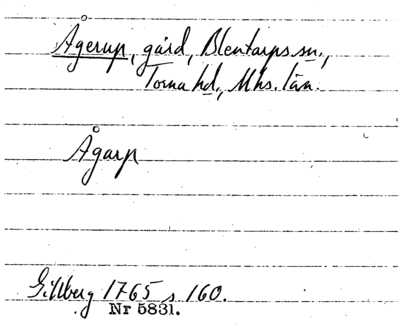 Ågerup, gård, Blentarps sn.,
Torna hd., Mhs. län.
Ågarp
Gillberg 1765 s 160.
Nr 5831.